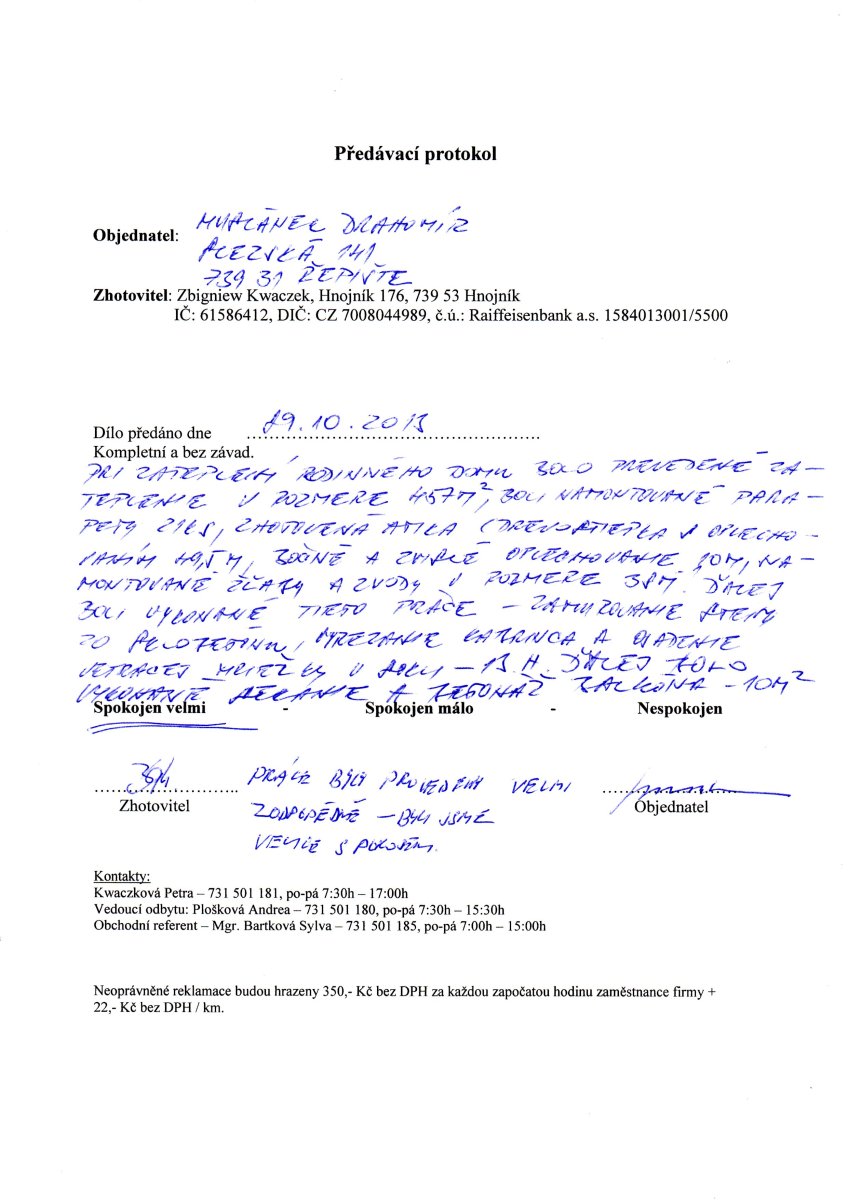 Předávací protokol
Objednatel: DRAHOMÍR
141
739 31 ŘEPIŠTE
Zhotovitel: Zbigniew Kwaczek, Hnojník 176, 739 53 Hnojník
IČ: 61586412, DIČ: CZ 7008044989, č.ú.: Raiffeisenbank a.s. 1584013001/5500
Dílo předáno dne 29.10.2013
Kompletní a bez závad.
PRI ZATEPLENÍ RODINNÉHO DOMU BOLO PREVEDENÉ ZA-
TEPLENIE V ROZMERE 457M², BOLI NAMONTOVANÉ PARA-
PETY 21KS, ZHOTOVENÁ ATIKA S OPLECHO-
VANÍM 49,5M, BOČNÉ A ZVISLÉ OPLECHOVANIE 20M, NA-
MONTOVANÉ ŽĽABY A ZVODY V ROZMERE 38M. ĎALEJ
BOLI VYKONANÉ TIETO PRÁCE - ZAMUROVANIE STENY
ZO VYREZANIE A OSADENIE
VETRACEJ MRIEŽKY V - 13 H. ĎALEJ BOLO
VYKONANÉ A BALKÓNA - 10M²
Spokojen velmi - Spokojen málo - Nespokojen
PRÁCE BYLY PROVEDENY VELMI
Zhotovitel
Objednatel
ZODPOVĚDNĚ - BYLI JSME
VELICE SPOKOJENI.
Kontakty:
Kwaczková Petra – 731 501 181, po-pá 7:30h – 17:00h
Vedoucí odbytu: Plošková Andrea – 731 501 180, po-pá 7:30h – 15:30h
Obchodní referent – Mgr. Bartková Sylva – 731 501 185, po-pá 7:00h – 15:00h
Neoprávněné reklamace budou hrazeny 350,- Kč bez DPH za každou započatou hodinu zaměstnance firmy +
22,- Kč bez DPH / km.